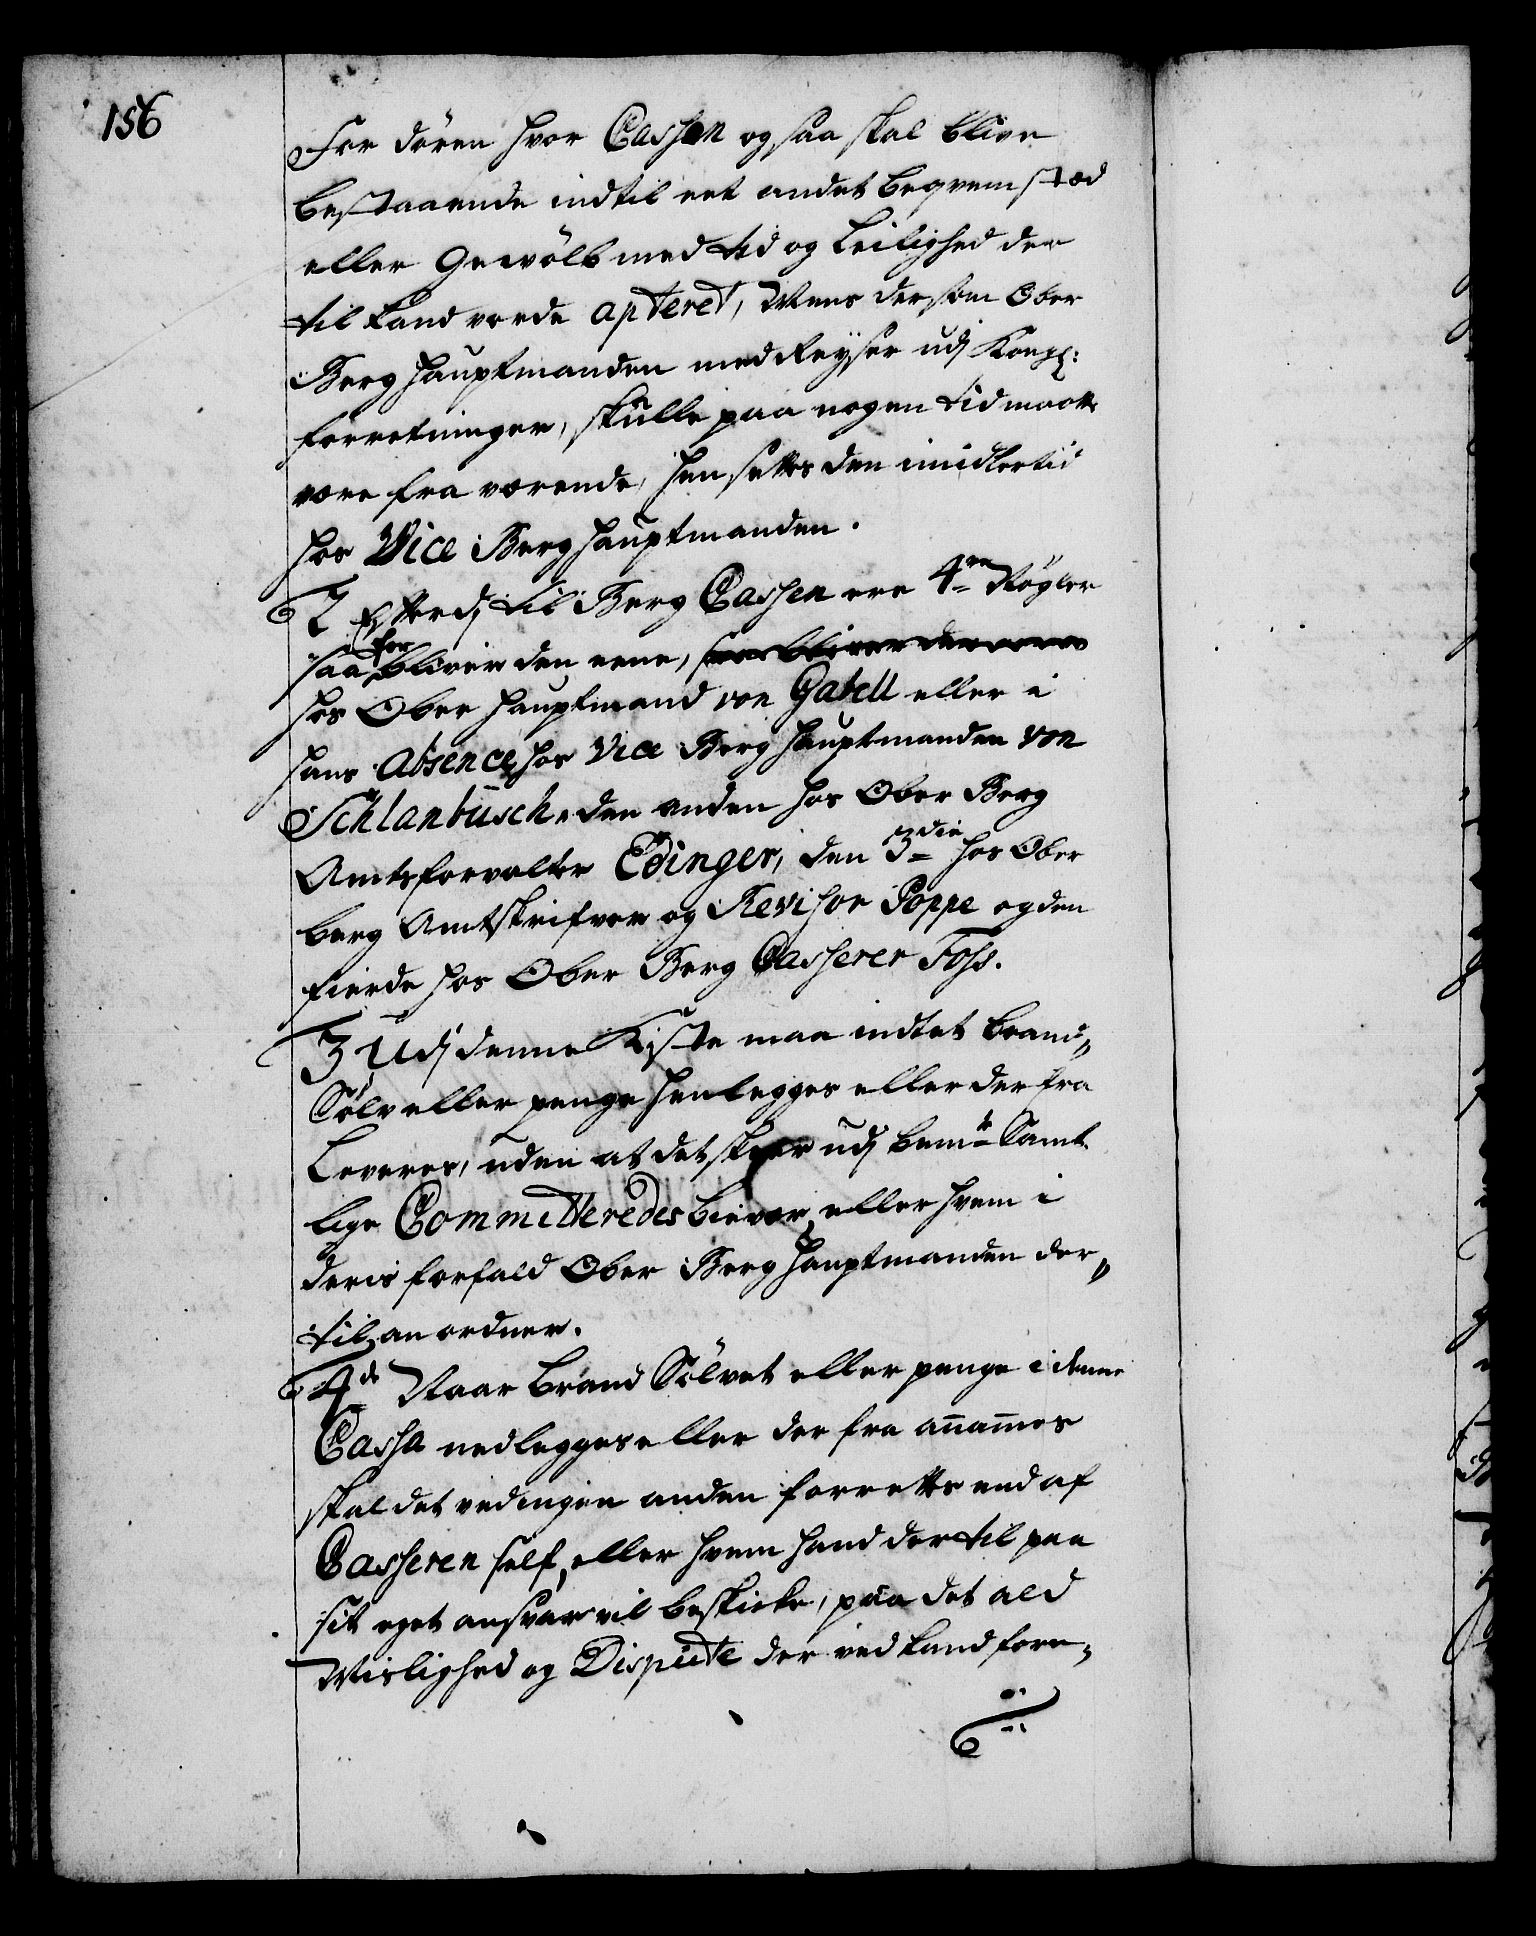 156
For dören hvor Cassen og saa skal blive
bestaaende indtil eet andet beqvem stæd
eller Gewölb med tid og Leilighed der
til kand vorde apteret, Mens dersom Ober
Berghauptmanden med Reyser udj Kongl:
forretninger, skulle paa nogen tid maatte
være fra værende, hen settes den imidlertid
hos Vice Berghauptmanden.
2 Efterdj til Berg Cassen ere 4re Nögler
saa for bliver den eene,
hos Ober hauptmand von Gabell eller i
hans Absence, hos Vice Berg hauptmanden von
Schlanbusch, den anden hos Ober Berg
Amtsforvalter Edinger, den 3die hos Ober
berg Amtskrifver og Revisor Poppe og den
fierde hos Ober Berg Casserer Foss.
3 Udj denne Kiste maa indtet brand„
Sölv eller penge henlegges eller der fra
Leveres, uden at det skeer udj bemte Samt
lige Committeredes biever, eller hvem i
deris forfald Ober Berg Hauptmanden der„
til anordner.
4de Naar brand Sölvet eller penge i denne
Cassa nedlegges eller der fra anammes
skal det ved ingen anden forrettes end af
Casseren self, eller hvem hand dertil paa
sit eget ansvar vil beskicke, paa det ald
Wislighed og Dispute der ved kand fore„